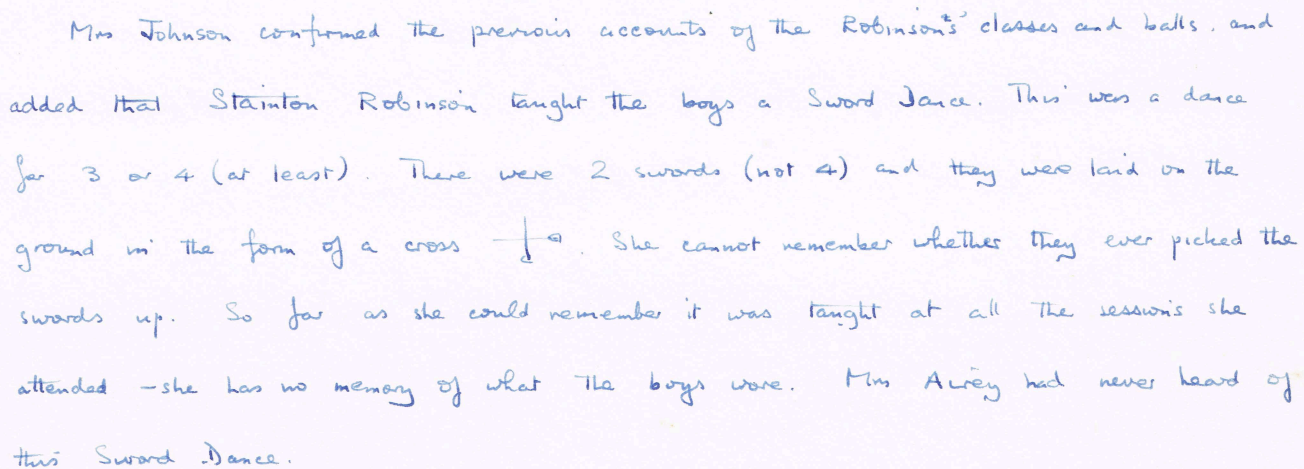 Mrs Johnson confirmed the previous accounts of the Robinson's' classes and balls, and
added that Stainton Robinson taught the boys a Sword Dance. This was a dance
for 3 or 4 (at least). There were 2 swords (not 4) and they were laid on the
ground in the form of a cross . She cannot remember whether they ever picked the
swords up. So far as she could remember it was taught at all the sessions she
attended – she has no memory of what the boys wore. Mrs Airey had never heard of
this Sword Dance.